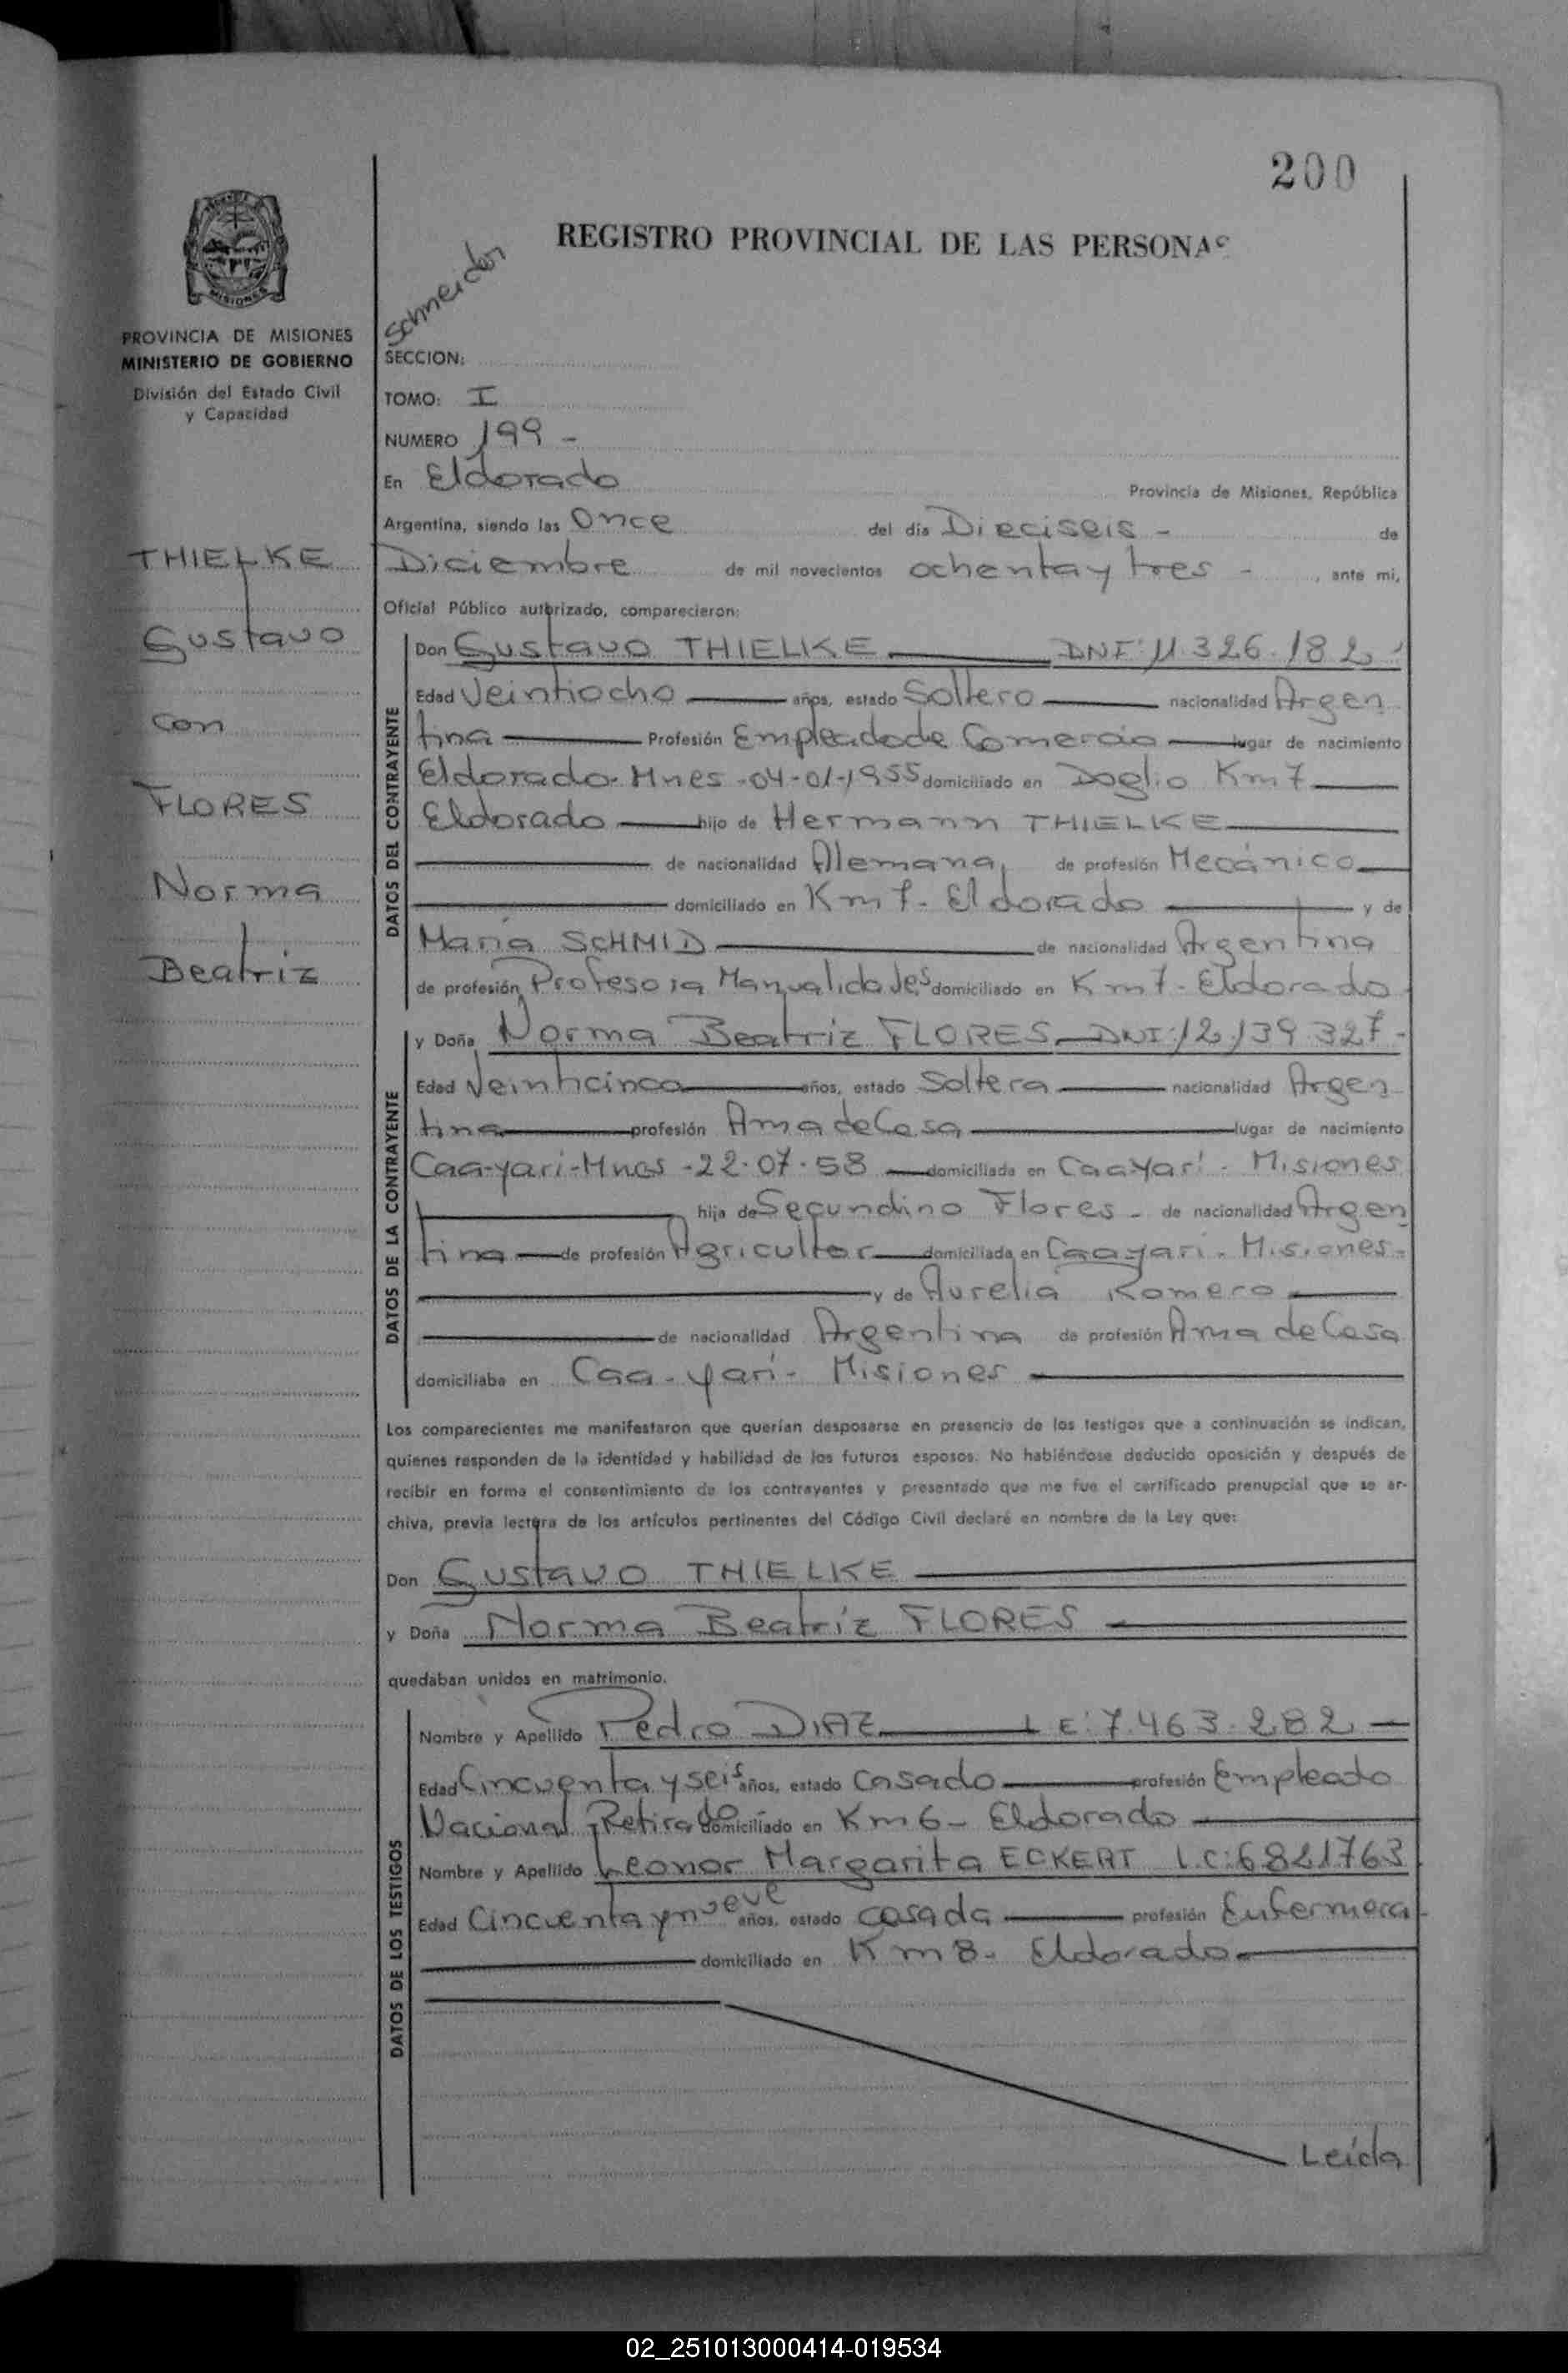 200
REGISTRO PROVINCIAL DE LAS PERSONAS
Schneider
MISIONES
PROVINCIA DE MISIONES
MINISTERIO DE GOBIERNO
División del Estado Civil
y Capacidad
SECCION:
TOMO: I
NUMERO 199 -
En Eldorado Provincia de Misiones, República
Argentina, siendo las Once del día Dieciseis - de
Diciembre de mil novecientos ochenta y tres - , ante mi,
Oficial Público autorizado, comparecieron:
THIELKE
Gustavo
con
FLORES
Norma
Beatriz
DATOS DEL CONTRAYENTE
Don Gustavo THIELKE DNI: 11.326.182
Edad Veintiocho años, estado Soltero nacionalidad Argen
tina Profesión Empleado de Comercio lugar de nacimiento
Eldorado-Mnes-04-01-1955 domiciliado en Doglio Km 7
Eldorado hijo de Hermann THIELKE
de nacionalidad Alemana, de profesión Mecánico
domiciliado en Km 7 - Eldorado y de
María SCHMID de nacionalidad Argentina
de profesión Profesora Manualidades domiciliado en Km 7 - Eldorado
DATOS DE LA CONTRAYENTE
y Doña Norma Beatriz FLORES - DNI: 12.139.327 -
Edad Veinticinco años, estado Soltera nacionalidad Argen
tina profesión Ama de Casa lugar de nacimiento
Caa-yari-Mnes -22-07-58 domiciliada en Caayarí - Misiones
hija de Secundino Flores - de nacionalidad Argen
tina de profesión Agricultor domiciliada en Caayari - Misiones -
y de Aurelia Romero
de nacionalidad Argentina de profesión Ama de Casa
domiciliaba en Caa-yarí - Misiones
Los comparecientes me manifestaron que querían desposarse en presencia de los testigos que a continuación se indican,
quienes responden de la identidad y habilidad de los futuros esposos. No habiéndose deducido oposición y después de
recibir en forma el consentimiento de los contrayentes y presentado que me fue el certificado prenupcial que se ar-
chiva, previa lectura de los artículos pertinentes del Código Civil declaré en nombre de la Ley que:
Don Gustavo THIELKE
y Doña Norma Beatriz FLORES
quedaban unidos en matrimonio.
DATOS DE LOS TESTIGOS
Nombre y Apellido Pedro DIAZ L E: 7.463.282
Edad Cincuenta y seis años, estado Casado profesión Empleado
Nacional Retirado domiciliado en Km 6 - Eldorado
Nombre y Apellido Leonor Margarita ECKERT L.C: 6821763
Edad Cincuenta y nueve años, estado casada profesión Enfermera
domiciliado en Km 8 - Eldorado
Leída
02_251013000414-019534